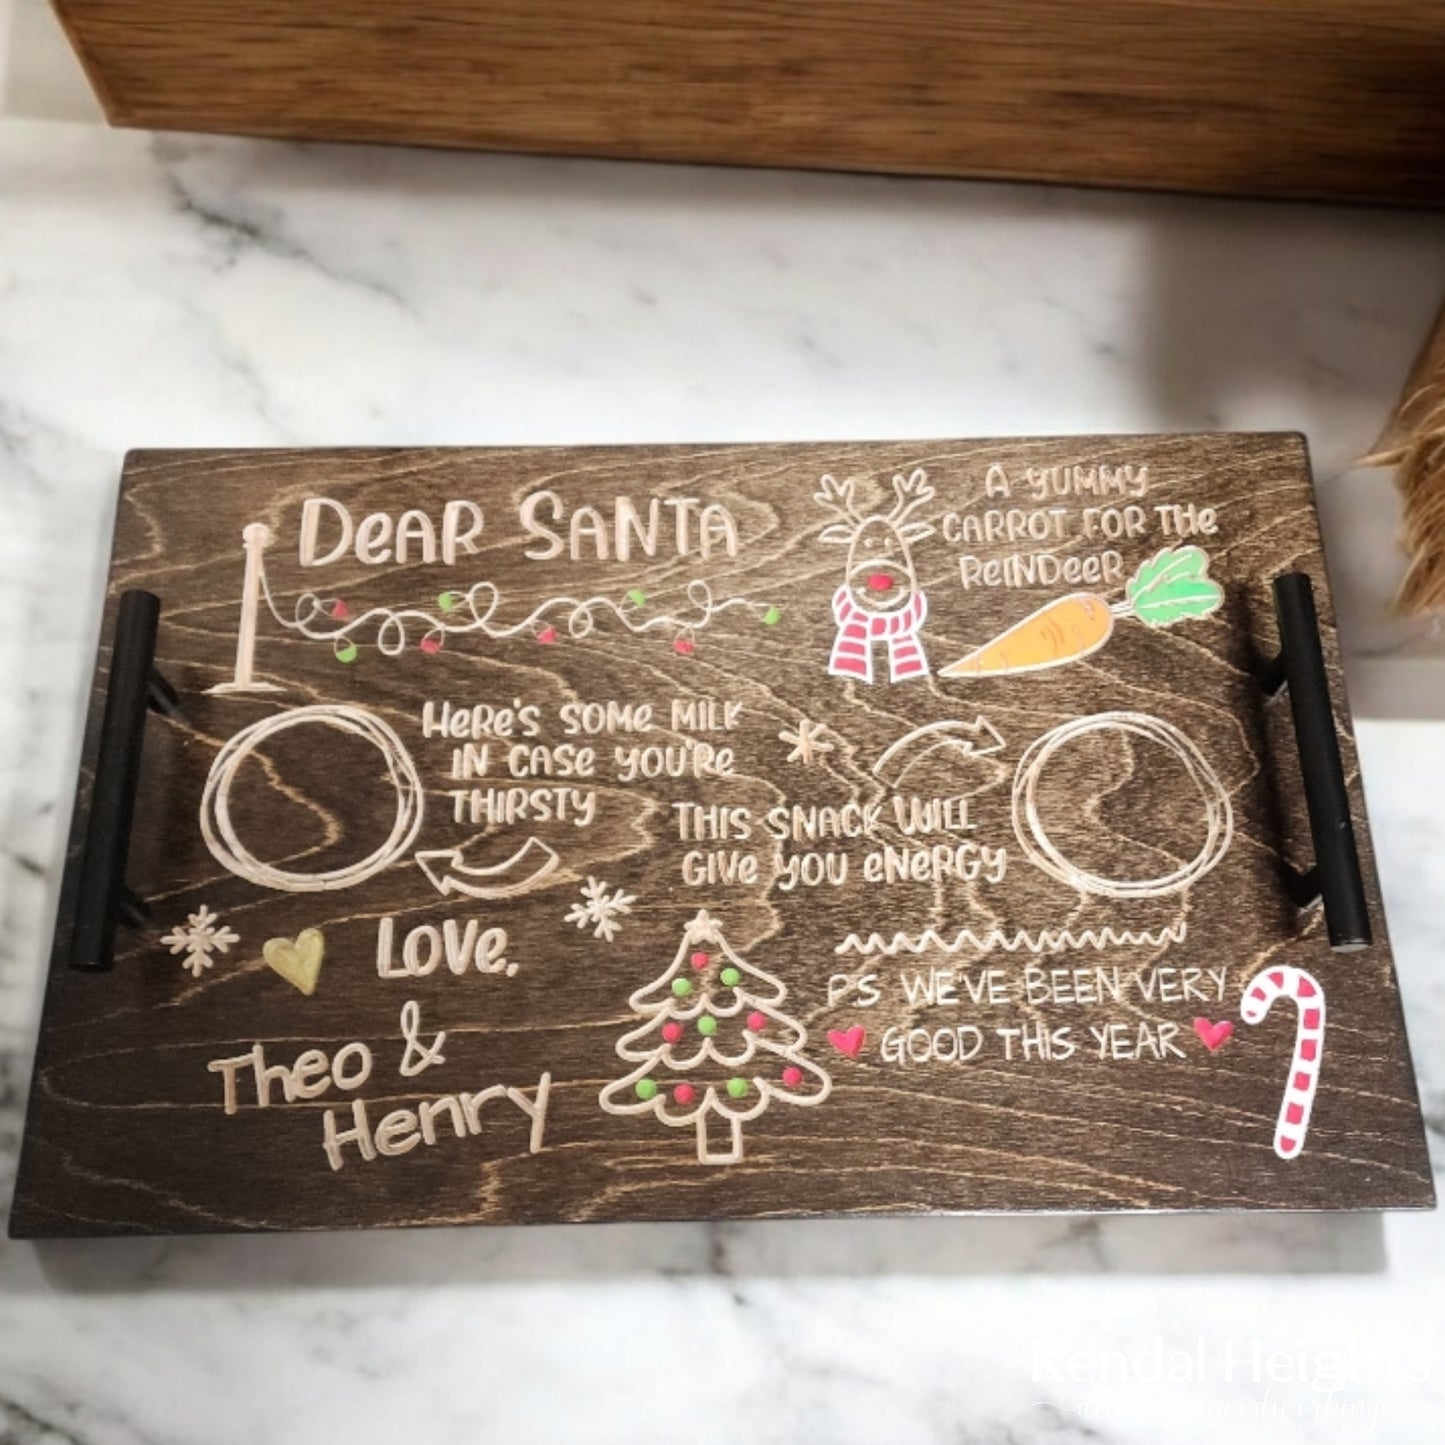 Dear Santa
A yummy
carrot for the
reindeer
Here's some milk
in case you're
thirsty
This snack will
give you energy
Love,
Theo &
Henry
PS WE'VE BEEN VERY
GOOD THIS YEAR
Kendal Heights
woodworking